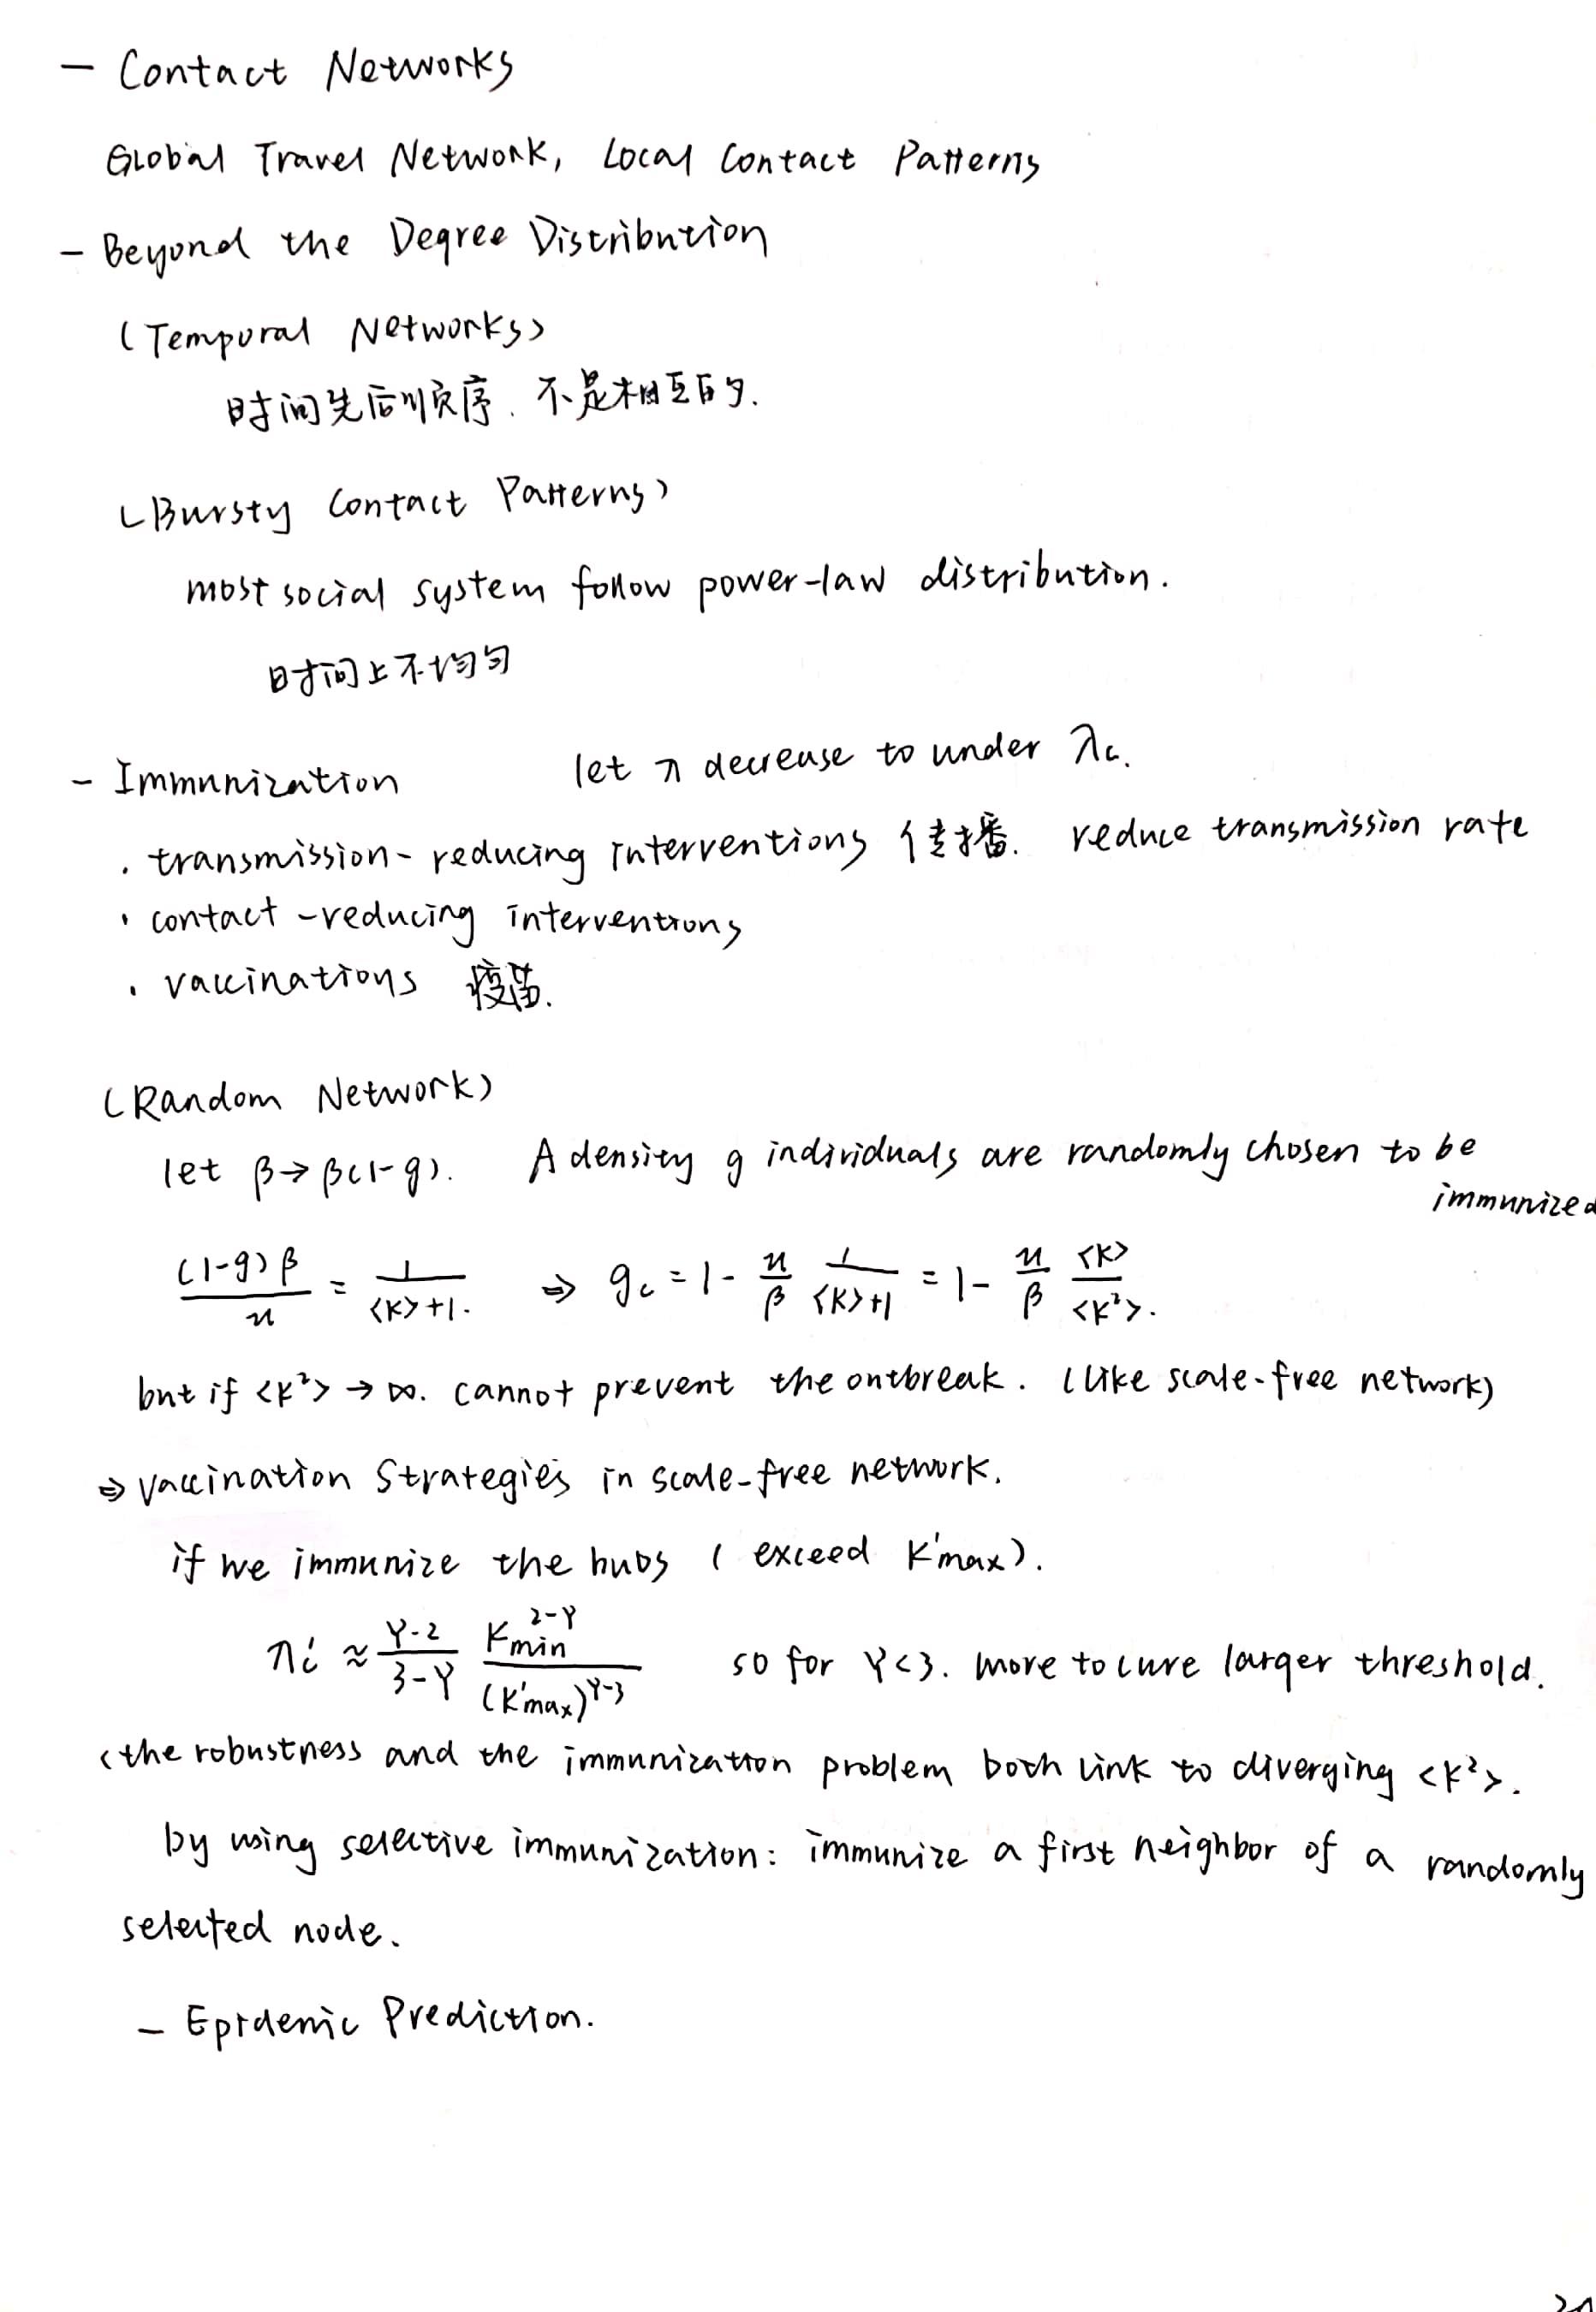 - Contact Networks
Global Travel Network, Local Contact Patterns
- Beyond the Degree Distribution
(Temporal Networks)
时间先后顺序. 不是相互的.
(Bursty Contact Patterns)
most social system follow power-law distribution.
时间上不均匀
- Immunization let λ decrease to under λc.
· transmission-reducing interventions 传播. reduce transmission rate
· contact-reducing interventions
· vaccinations 疫苗.
(Random Network)
let β→β(1-g). A density g individuals are randomly chosen to be immunized
(1-g)β/μ = 1/(<k>+1). ⇒ gc = 1 - μ/β 1/(<k>+1) = 1 - μ/β <k>/<k²>.
but if <k²> → ∞. cannot prevent the outbreak. (like scale-free network)
⇒ Vaccination Strategies in scale-free network.
if we immunize the hubs (exceed k'max).
λ'c ≈ (γ-2)/(3-γ) kmin^(2-γ)/(k'max)^(γ-3) so for γ<3. more to cure larger threshold.
(the robustness and the immunization problem both link to diverging <k²>.
by using selective immunization: immunize a first neighbor of a randomly
selected node.
- Epidemic Prediction.